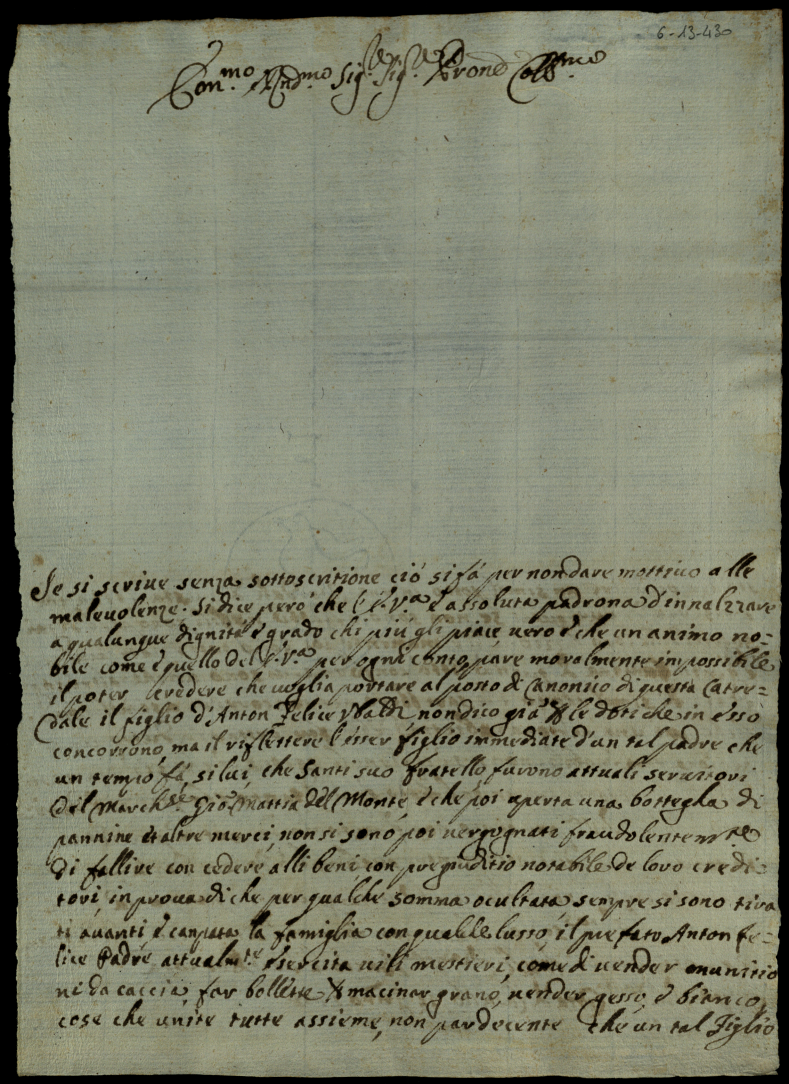 6-13-430
Ill.mo Rnd.mo Sig.r Sig.r Prone Coll.mo
Se si scriue senza sottoscritione ciò si fà per non dare mottiuo alle
maleuolenze. Si dice però che l' V.ra è assoluta padrona d'innalzare
a qualunque dignità e grado chi più gli piace uero è che un animo no=
bile come è quello del V.ra per ogni conto pare moralmente impossibile
il poter credere che uoglia portare al posto di Canonico di questa Catre=
dale il figlio d'Anton Felice Vbaldi non dico già le doti che in esso
concorrono, ma il riflettere l'esser figlio immediate d'un tal padre che
un tempo fà, si lui, che Santi suo fratello, furono attuali seruitori
del March.se Gio: Mattia del Monte, e che poi aperta una bottegha di
pannine et altre merci, non si sono poi uergognati fraudolentem.te
di fallire con cedere alli beni con pregiuditio notabile de loro credi=
tori, in proua di che per qualche somma ocultata sempre si sono tira
ti auanti e canpata la famiglia con qualche lusso, il prefato Anton Fe=
lice Padre attualm.te esercita uili mestieri, come di uender munitio
ni da caccia, far bollette macinar grano, uender gesso, e bianco,
cose che unite tutte assieme, non par decente che un tal Figlio